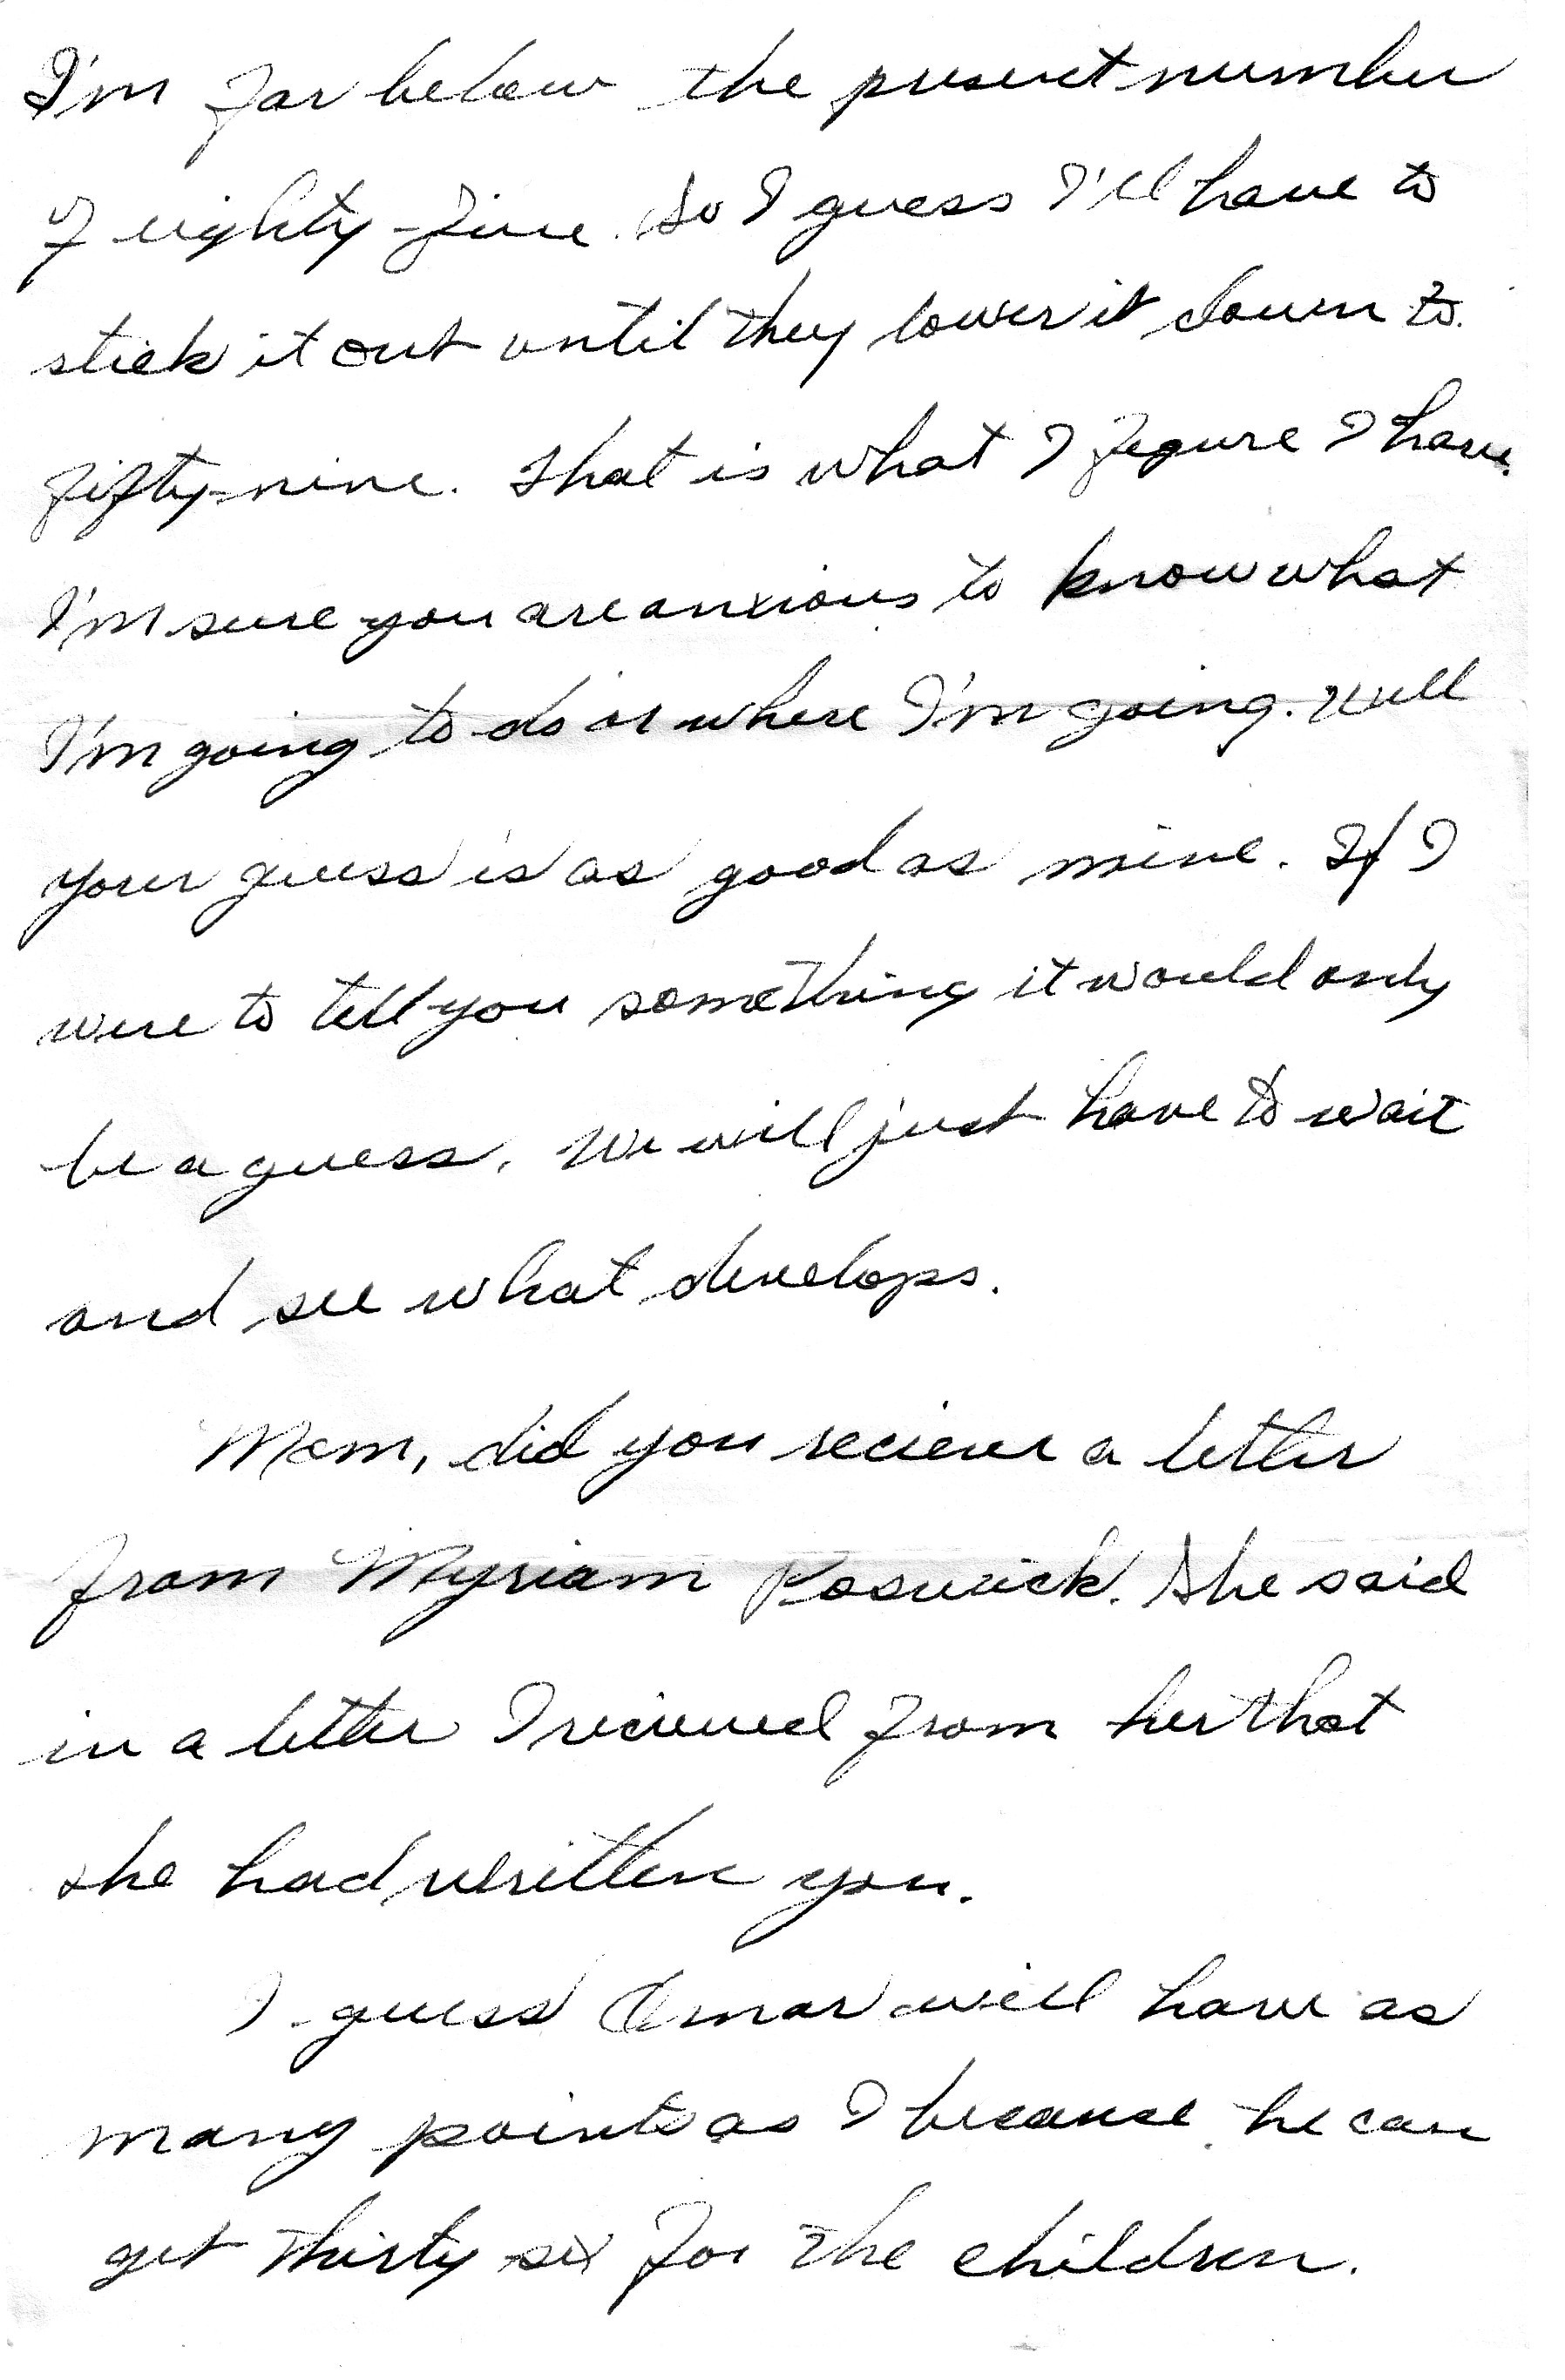 I'm far below the present number
of eighty-five. So I guess I'll have to
stick it out until they lower it down to
fifty-nine. That is what I figure I have.
I'm sure you are anxious to know what
I'm going to do or where I'm going. Well
your guess is as good as mine. If I
were to tell you something it would only
be a guess. We will just have to wait
and see what develops.
Mom, did you recieve a letter
from Myriam . She said
in a letter I recieved from her that
she had written you.
I guess Omar will have as
many points as I because he can
get thirty-six for the children.